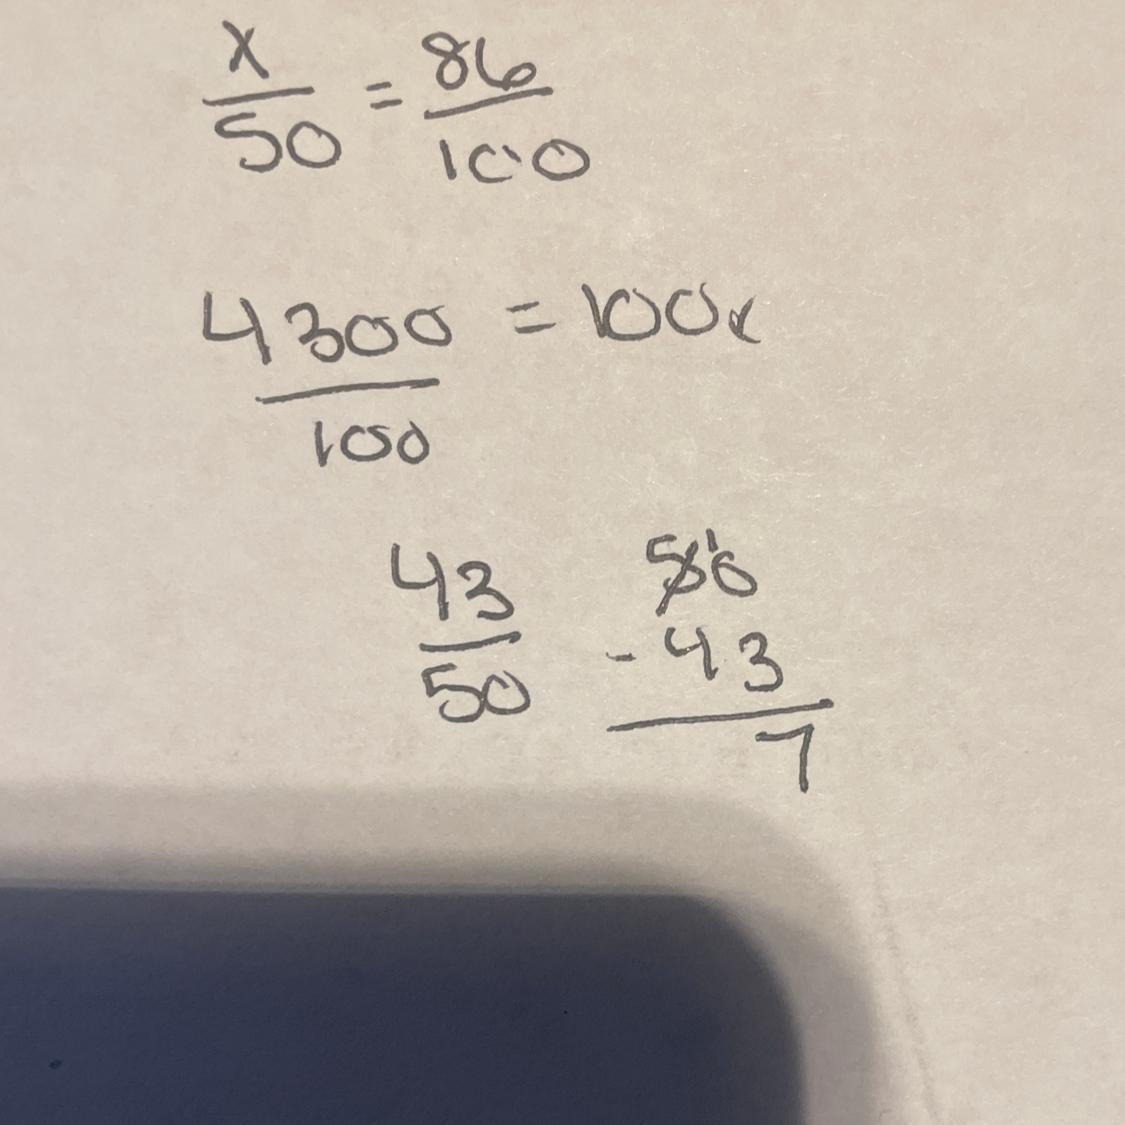 x/50 = 86/100
4300/100 = 100x
43/50
50
- 43
7